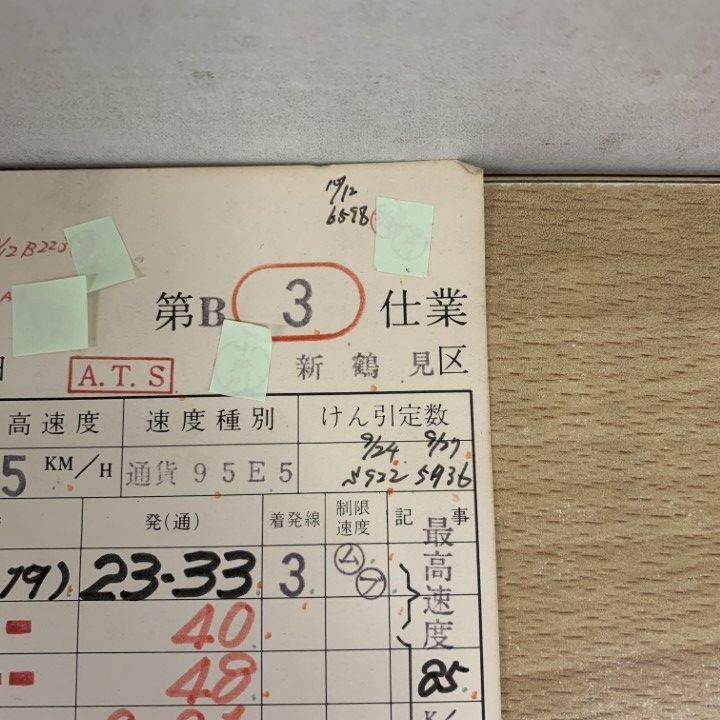 19/12
6598
12 B223
第B 3 仕業
A.T.S
新鶴見区
高速度 速度種別 けん引定数
5 KM/H 通貨95E5 9/24 9/27
5922 5936
発(通) 着発線 制限速度 記事
19) 23-33 3 ム フ 最高速度
40
48 85
K/